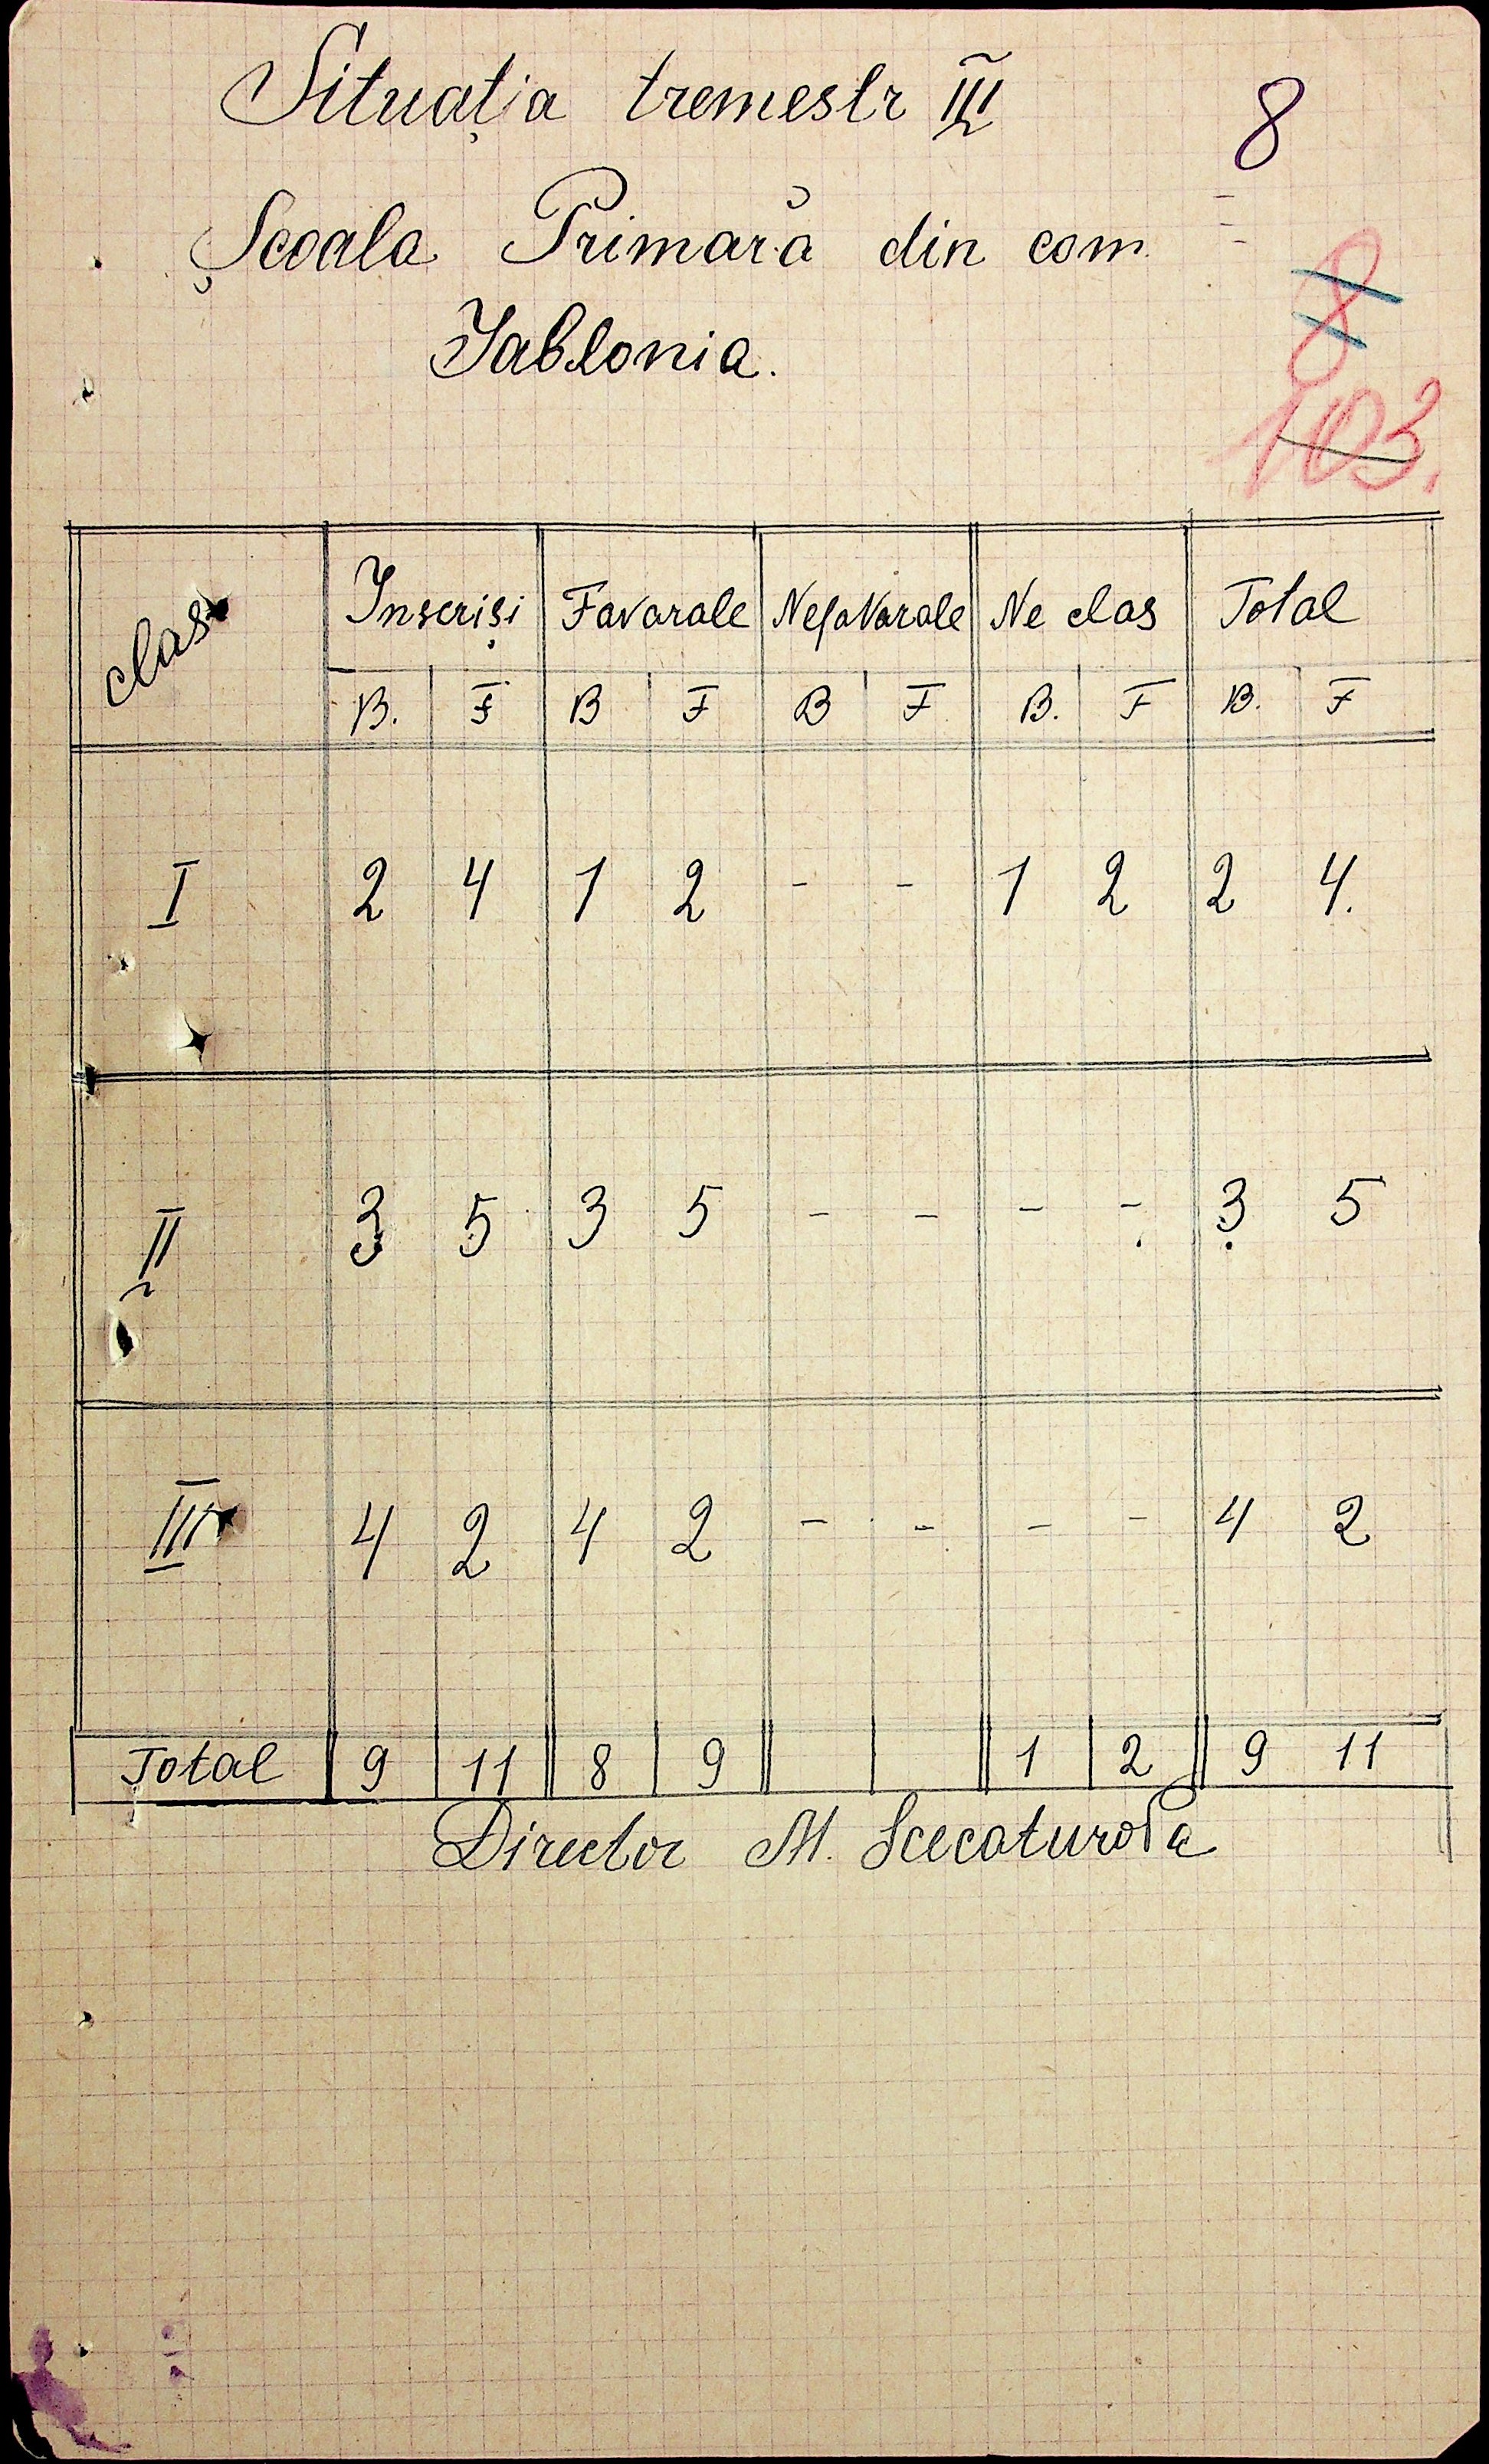 Situația tremestr III
8
Școala Primară din com.
8
Jablonia.
103.
clas Inscriși Favorale Nefavorale Ne clas Total
B. F B F B F B. F B. F
I 2 4 1 2 - - 1 2 2 4.
II 3 5 3 5 - - - - 3 5
III 4 2 4 2 - - - - 4 2
Total 9 11 8 9 1 2 9 11
Director M.